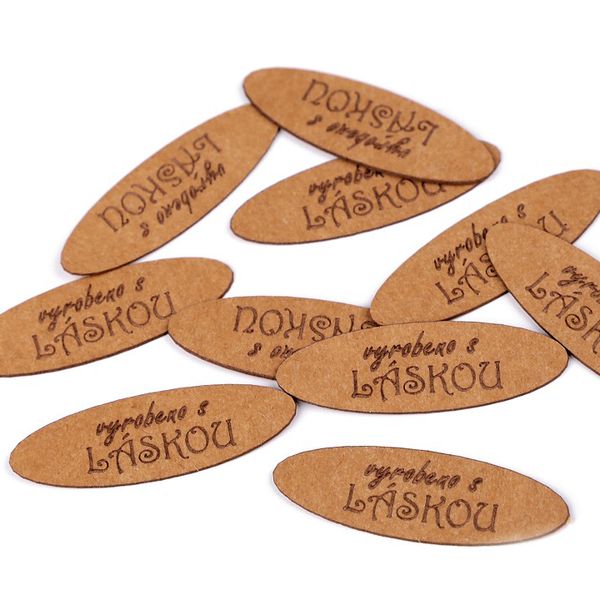 vyrobeno s
LÁSKOU
vyrobeno s
LÁSKOU
vyrobeno
LÁSKOU
vyrobeno s
vyrobeno s
LÁSKOU
vyrobeno s
LÁSKOU
vyrobeno s
LÁSKOU
vyrobeno s
LÁSKOU